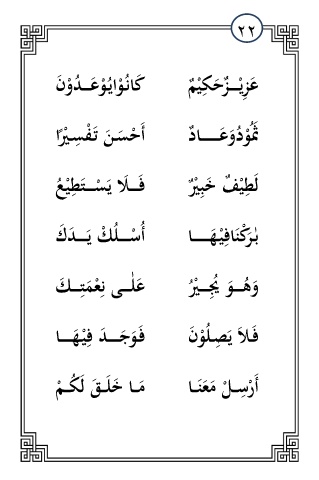 ٢٢
عَزِيْزٌحَكِيْمٌ كَانُوْايُوْعَدُوْنَ
ثَمُوْدُوَعَادٌ أَحْسَنَ تَفْسِيْرًا
لَطِيْفٌ خَبِيْرٌ فَلَا يَسْتَطِيْعُ
بٰرَكْنَافِيْهَا أُسْلُكْ يَدَكَ
وَهُوَ يُجِيْرُ عَلٰى نِعْمَتِكَ
فَلاَ يَصِلُوْنَ فَوَجَدَ فِيْهَا
أَرْسِلْ مَعَنَا مَا خَلَقَ لَكُمْ